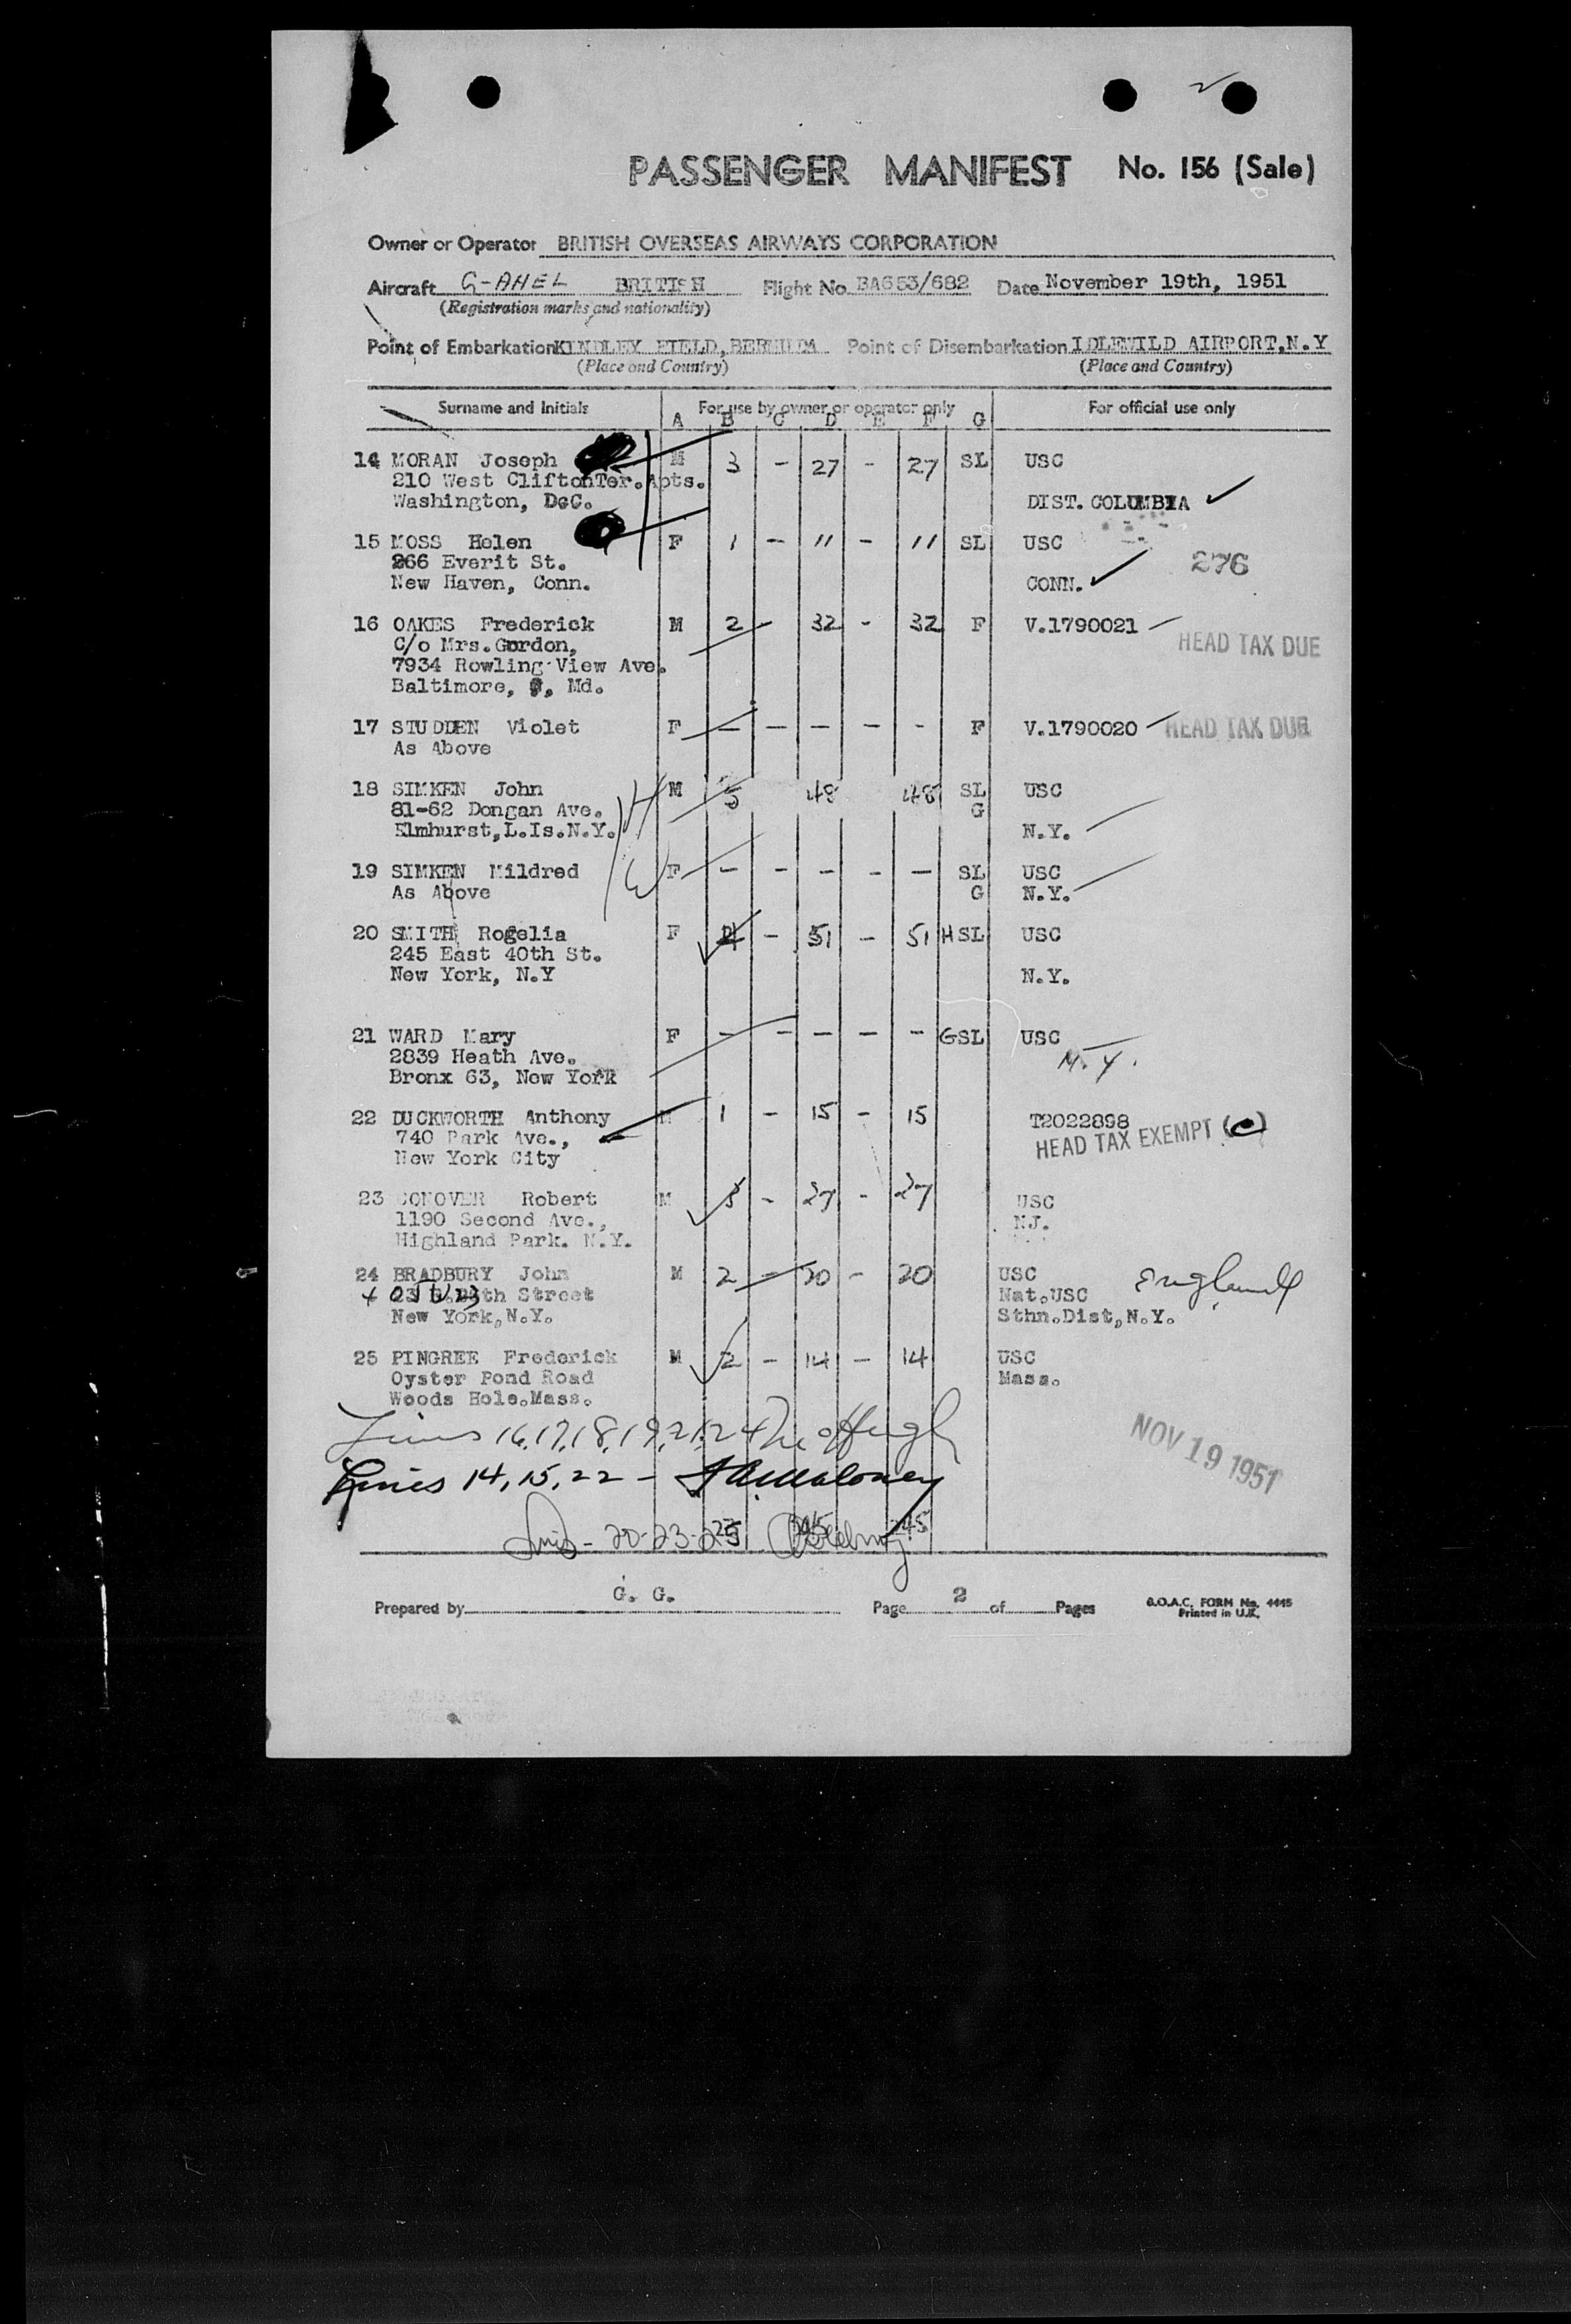 PASSENGER MANIFEST No. 156 (Sale)
Owner or Operator BRITISH OVERSEAS AIRWAYS CORPORATION
Aircraft G-AHEL BRITISH Flight No. BA653/682 Date November 19th, 1951
(Registration marks and nationality)
Point of Embarkation KINDLEY FIELD, BERMUDA Point of Disembarkation IDLEWILD AIRPORT, N.Y
(Place and Country) (Place and Country)
Surname and Initials For use by owner or operator only For official use only
A B C D E F G
14 MORAN Joseph M 3 - 27 - 27 SL USC
210 West Clifton Ter. Apts.
Washington, D.C. DIST. COLUMBIA ✓
15 MOSS Helen F 1 - 11 - 11 SL USC
266 Everit St. 276
New Haven, Conn. CONN. ✓
16 OAKES Frederick M 2 - 32 - 32 F V.1790021
C/o Mrs. Gordon, HEAD TAX DUE
7934 Rowling View Ave.
Baltimore, Md.
17 STUDDEN Violet F - - - - - F V.1790020 HEAD TAX DUE
As Above
18 SIMKEN John H M 5 48 48 SL USC
81-62 Dongan Ave. G
Elmhurst, L.Is.N.Y. N.Y.
19 SIMKEN Mildred W F - - - - - SL USC
As Above G N.Y.
20 SMITH Rogelia F 4 - 51 - 51 H SL USC
245 East 40th St.
New York, N.Y N.Y.
21 WARD Mary F - - - - - GSL USC
2839 Heath Ave. N.Y.
Bronx 63, New York
22 DUCKWORTH Anthony M 1 - 15 - 15 T2022898
740 Park Ave., HEAD TAX EXEMPT (C)
New York City
23 CONOVER Robert M 3 - 27 - 27 USC
1190 Second Ave., NJ.
Highland Park. N.Y.
24 BRADBURY John M 2 - 20 - 20 USC England
Street Nat.USC
New York, N.Y. Sthn.Dist, N.Y.
25 PINGREE Frederick M 2 - 14 - 14 USC
Oyster Pond Road Mass.
Woods Hole. Mass.
Lines 16,17,18,19,21,24
NOV 19 1951
Lines 14, 15, 22 - Maloney
Lines - 20-23-25 245 245
Prepared by G. G. Page 2 of Pages B.O.A.C. FORM No. 4445
Printed in U.K.